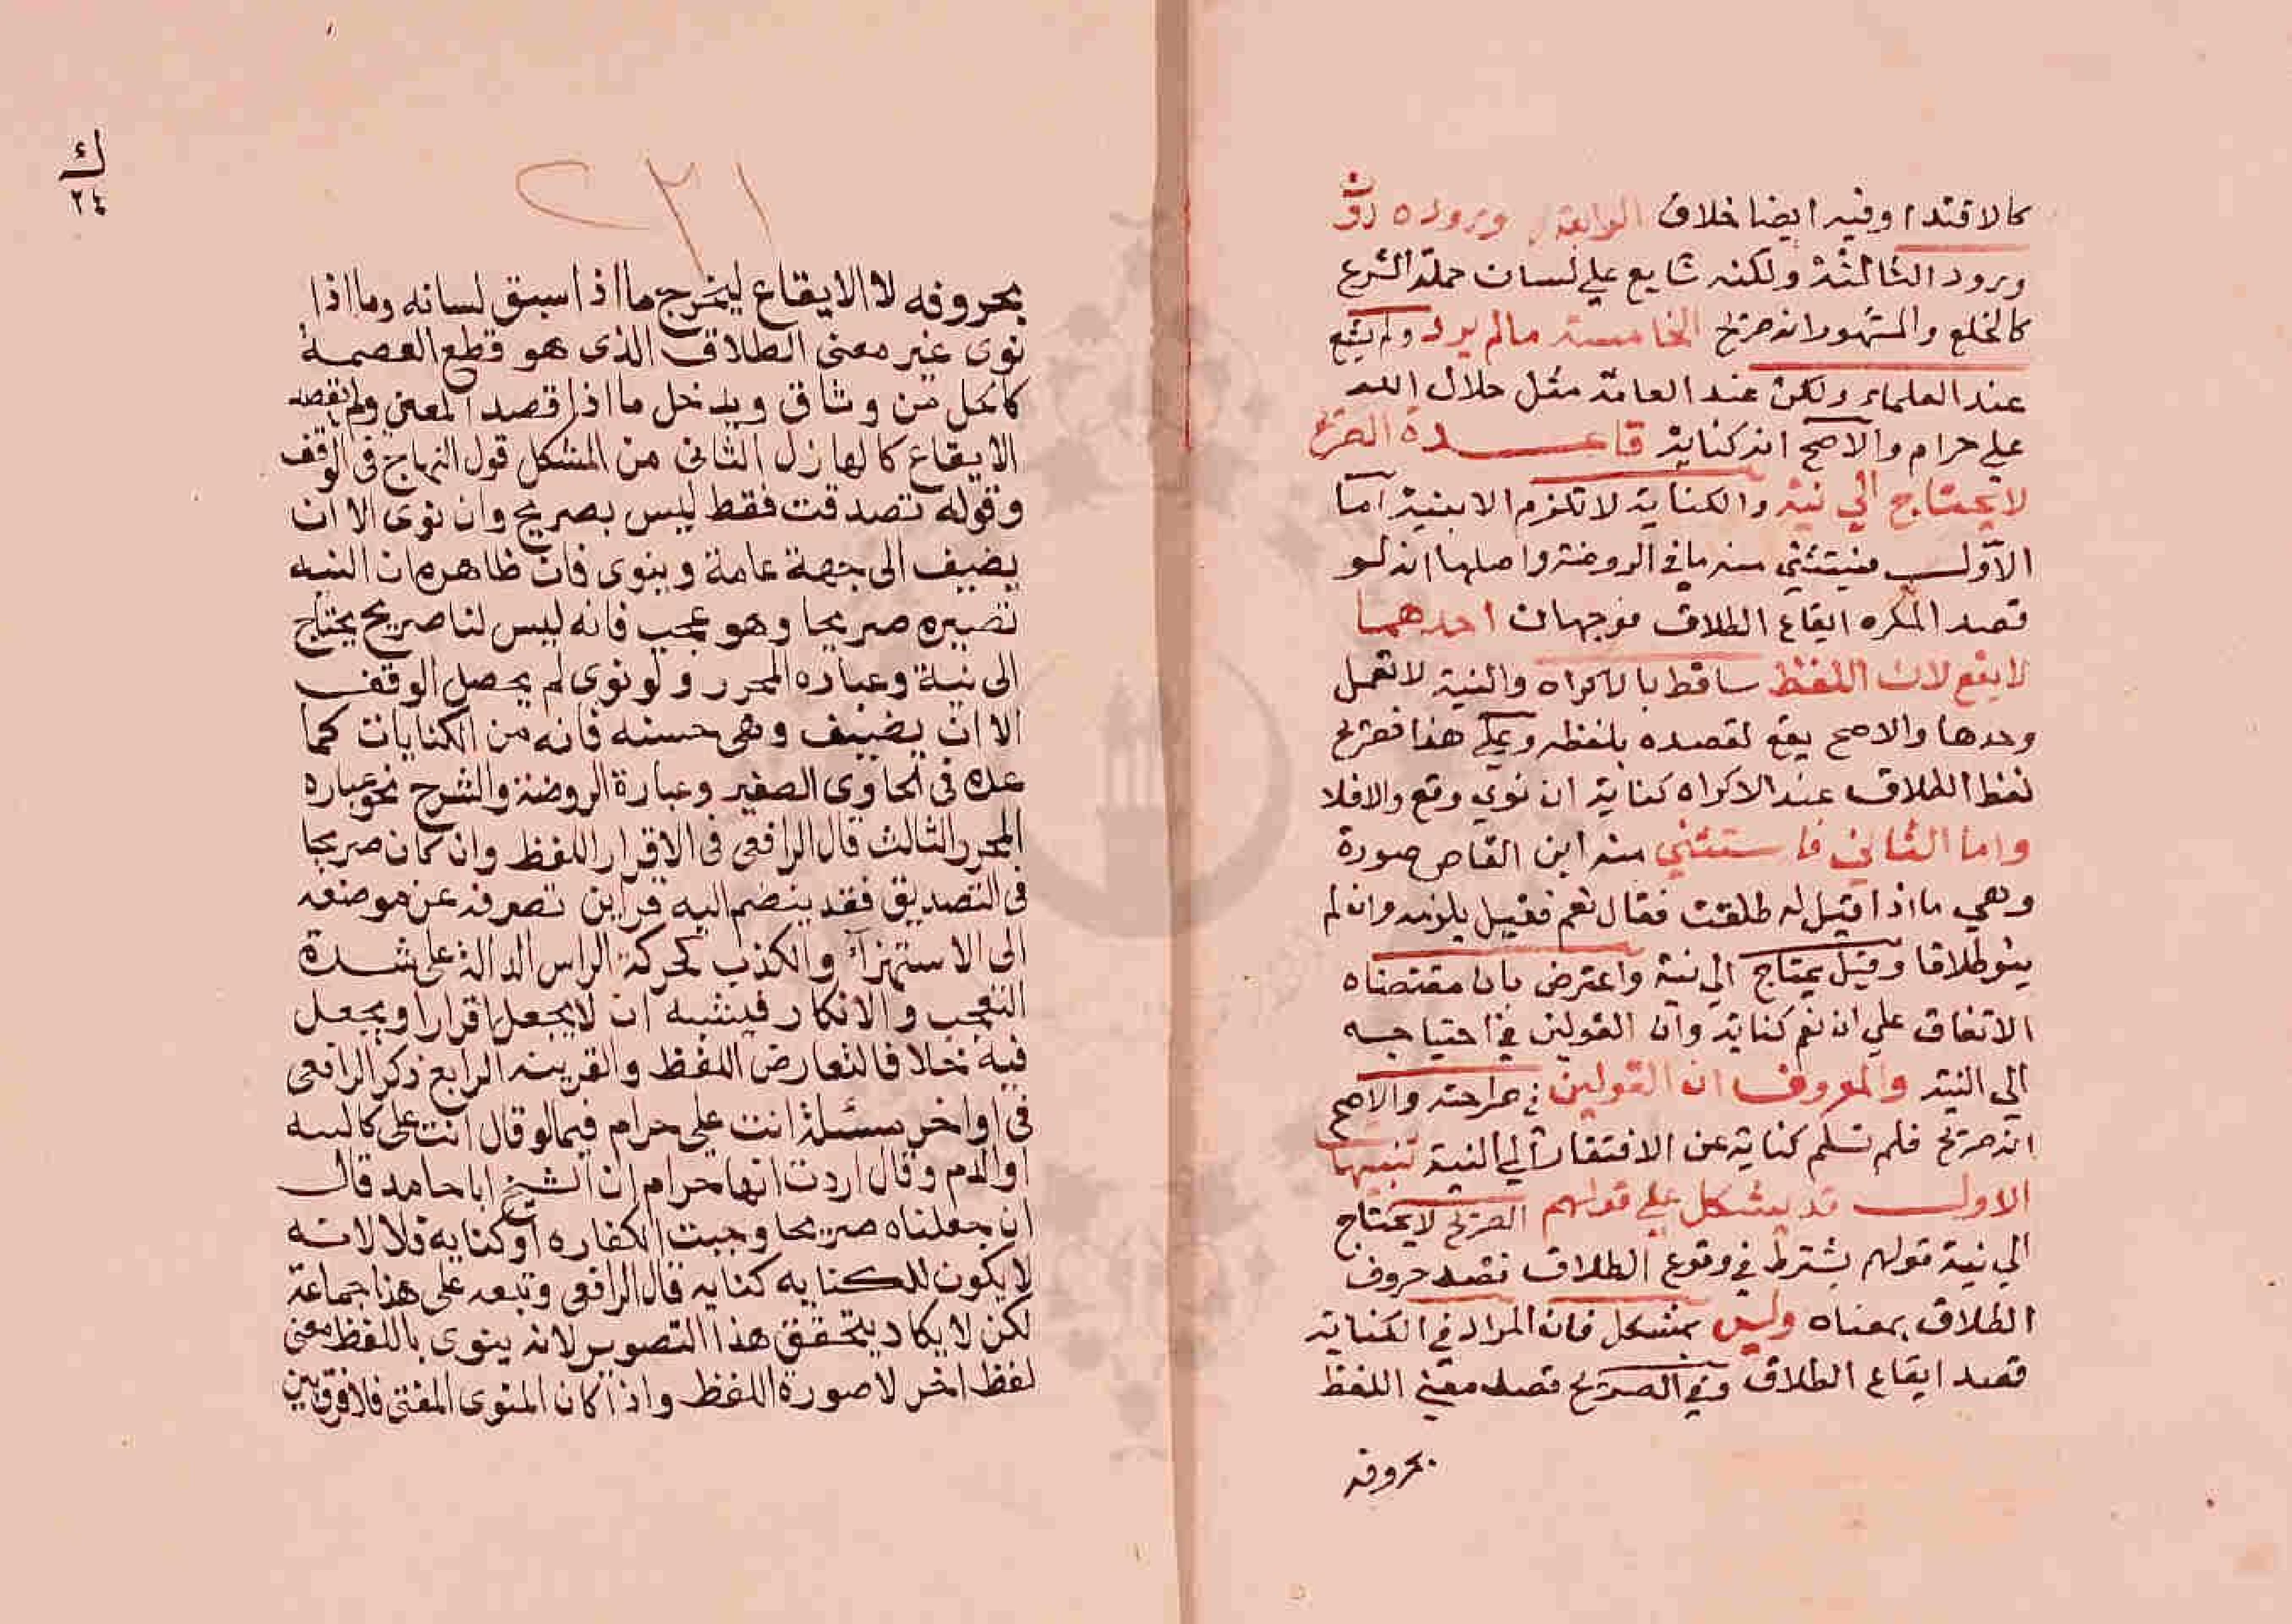 كالافتدا وفيه ايضا خلاف الرابعة وروده دون
ورود الثالثة ولكنه شايع علي لسان حملة الشرع
كالخلع والمشهور انه صريح الخامسة مالم يرد ولم يشع
عند العلماء ولكن عند العامة مثل حلال الله
علي حرام والاصح انه كناية قاعدة الصريح
لا يحتاج الي نية والكناية لا تلزم الا بنية اما
الاول فيستثني منه ما في الروضة واصلها انه لو
قصد المكره ايقاع الطلاق فوجهان احدهما
لا يقع لان اللفظ ساقط بالاكراه والنية لا تعمل
وحدها والاصح يقع لقصده بلفظه وعلي هذا فصريح
لفظ الطلاق عند الاكراه كناية ان نوي وقع والا فلا
واما الثاني فاستثني منه ابن القاص صورة
وهي ما اذا قيل له طلقت فقال نعم فقيل يلزمه وان لم
ينو طلاقا وقيل يحتاج الي نية واعترض بان مقتضاه
الاتفاق علي ان نعم كناية وان القولين في احتياجه
الي النية والمعروف ان القولين في صراحته والاصح
انه صريح فلم تسلم كناية عن الافتقار الي النية تنبيهان
الاول قد يشكل علي قولهم الصريح لا يحتاج
الي نية قولهم يشترط في وقوع الطلاق قصد حروف
الطلاق بمعناه وليس بمشكل فان المراد في الكناية
قصد ايقاع الطلاق وفي الصريح قصد معني اللفظ
بحروفه
ك
٢٤
٢٣١
بحروفه لا الايقاع ليخرج ما اذا سبق لسانه وما اذا
نوى غير معنى الطلاق الذى هو قطع العصمة
كالحل من وثاق ويدخل ما اذا قصد المعنى ولم يقصد
الايقاع كالهازل الثانى من المشكل قول المنهاج فى الوقف
وقوله تصدقت فقط ليس بصريح وان نوى الا ان
يضيف الى جهة عامة وينوى فان ظاهره ان النيه
تصيره صريحا وهو عجب فانه ليس لنا صريح يحتاج
الى نية وعباره المحرر ولو نوى لم يحصل الوقف
الا ان يضيف وهى حسنه فانه من الكنايات كما
عده فى الحاوى الصغير وعبارة الروضة والشرح نحو عباره
المحرر الثالث قال الرافعى فى الاقرار اللفظ وان كان صريحا
فى التصديق فقد ينضم اليه قراين تصرفه عن موضعه
الى الاستهزآء والكذب كحركة الراس الدالة على شدة
التعجب والانكار فيشبه ان لا يجعل اقرارا ويجعل
فيه خلافا لتعارض اللفظ والقرينه الرابع ذكر الرافعى
فى اواخر مسئلة انت على حرام فيما لو قال انت على كالميته
اوالدم وقال اردت انها حرام ان الشيخ ابا حامد قال
ان جعلناه صريحا وجبت الكفاره او كنايه فلا لانه
لا يكون للكنايه كنايه قال الرافعى وتبعه على هذا جماعة
لكن لا يكاد يتحقق هذا التصوير لانه ينوى باللفظ معنى
لفظ اخر لا صورة اللفظ واذا كان المنوى المعنى فلا فرق بين